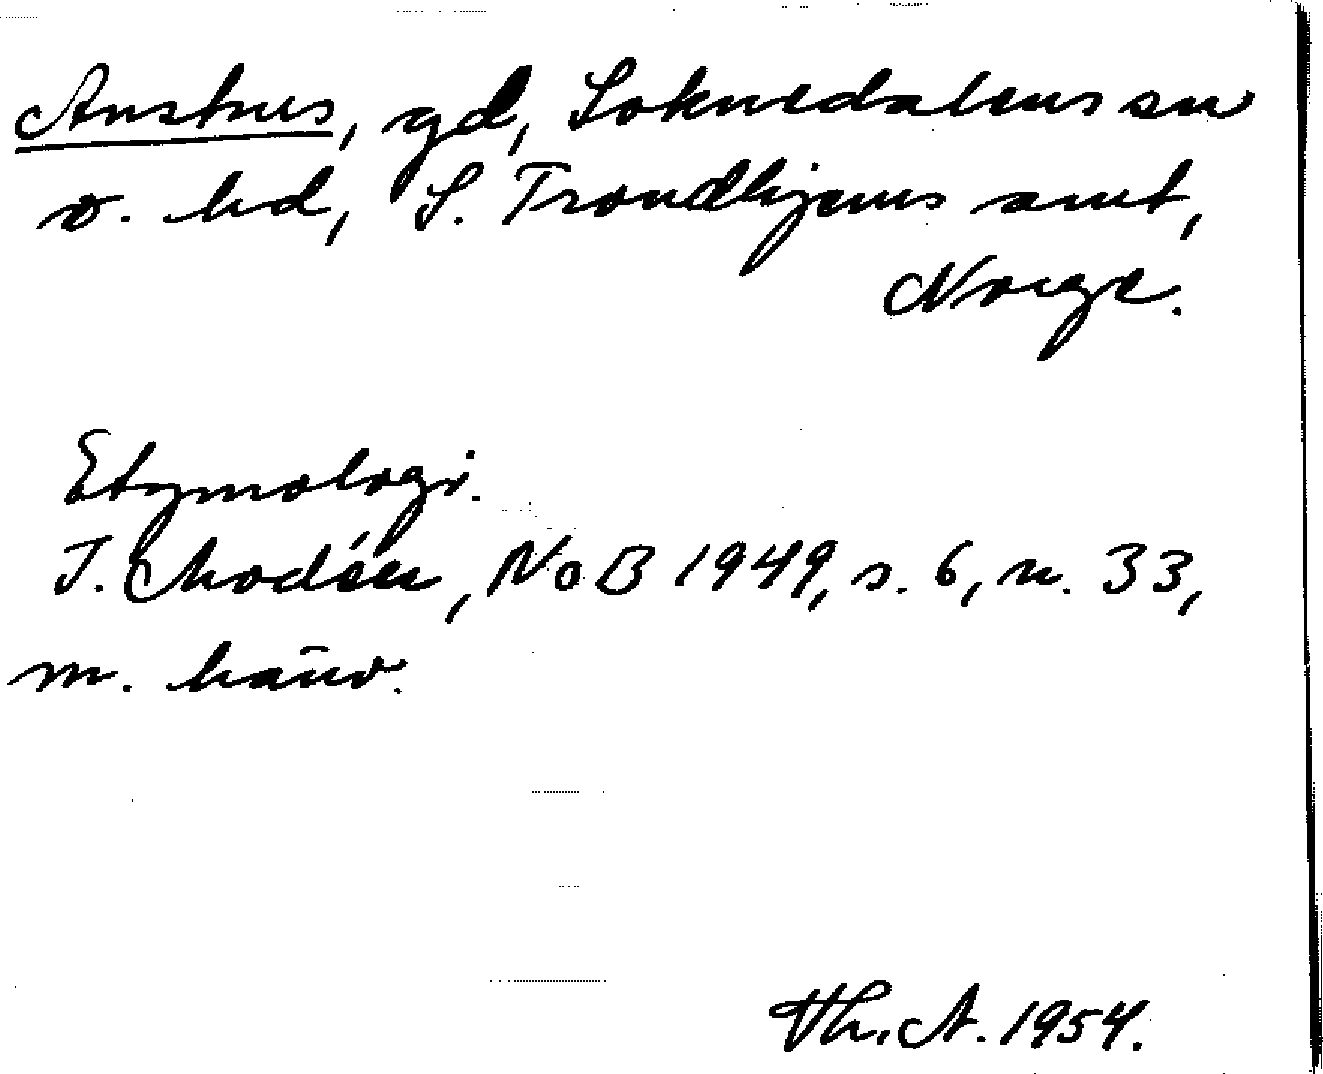 Anshus, gd, Soknedalens sn
o. hd, S. Trondhjems amt,
Norge.
Etymologi.
T. Chodéu, NoB 1949, s. 6, n. 33,
m. hänv.
Th. A. 1954.